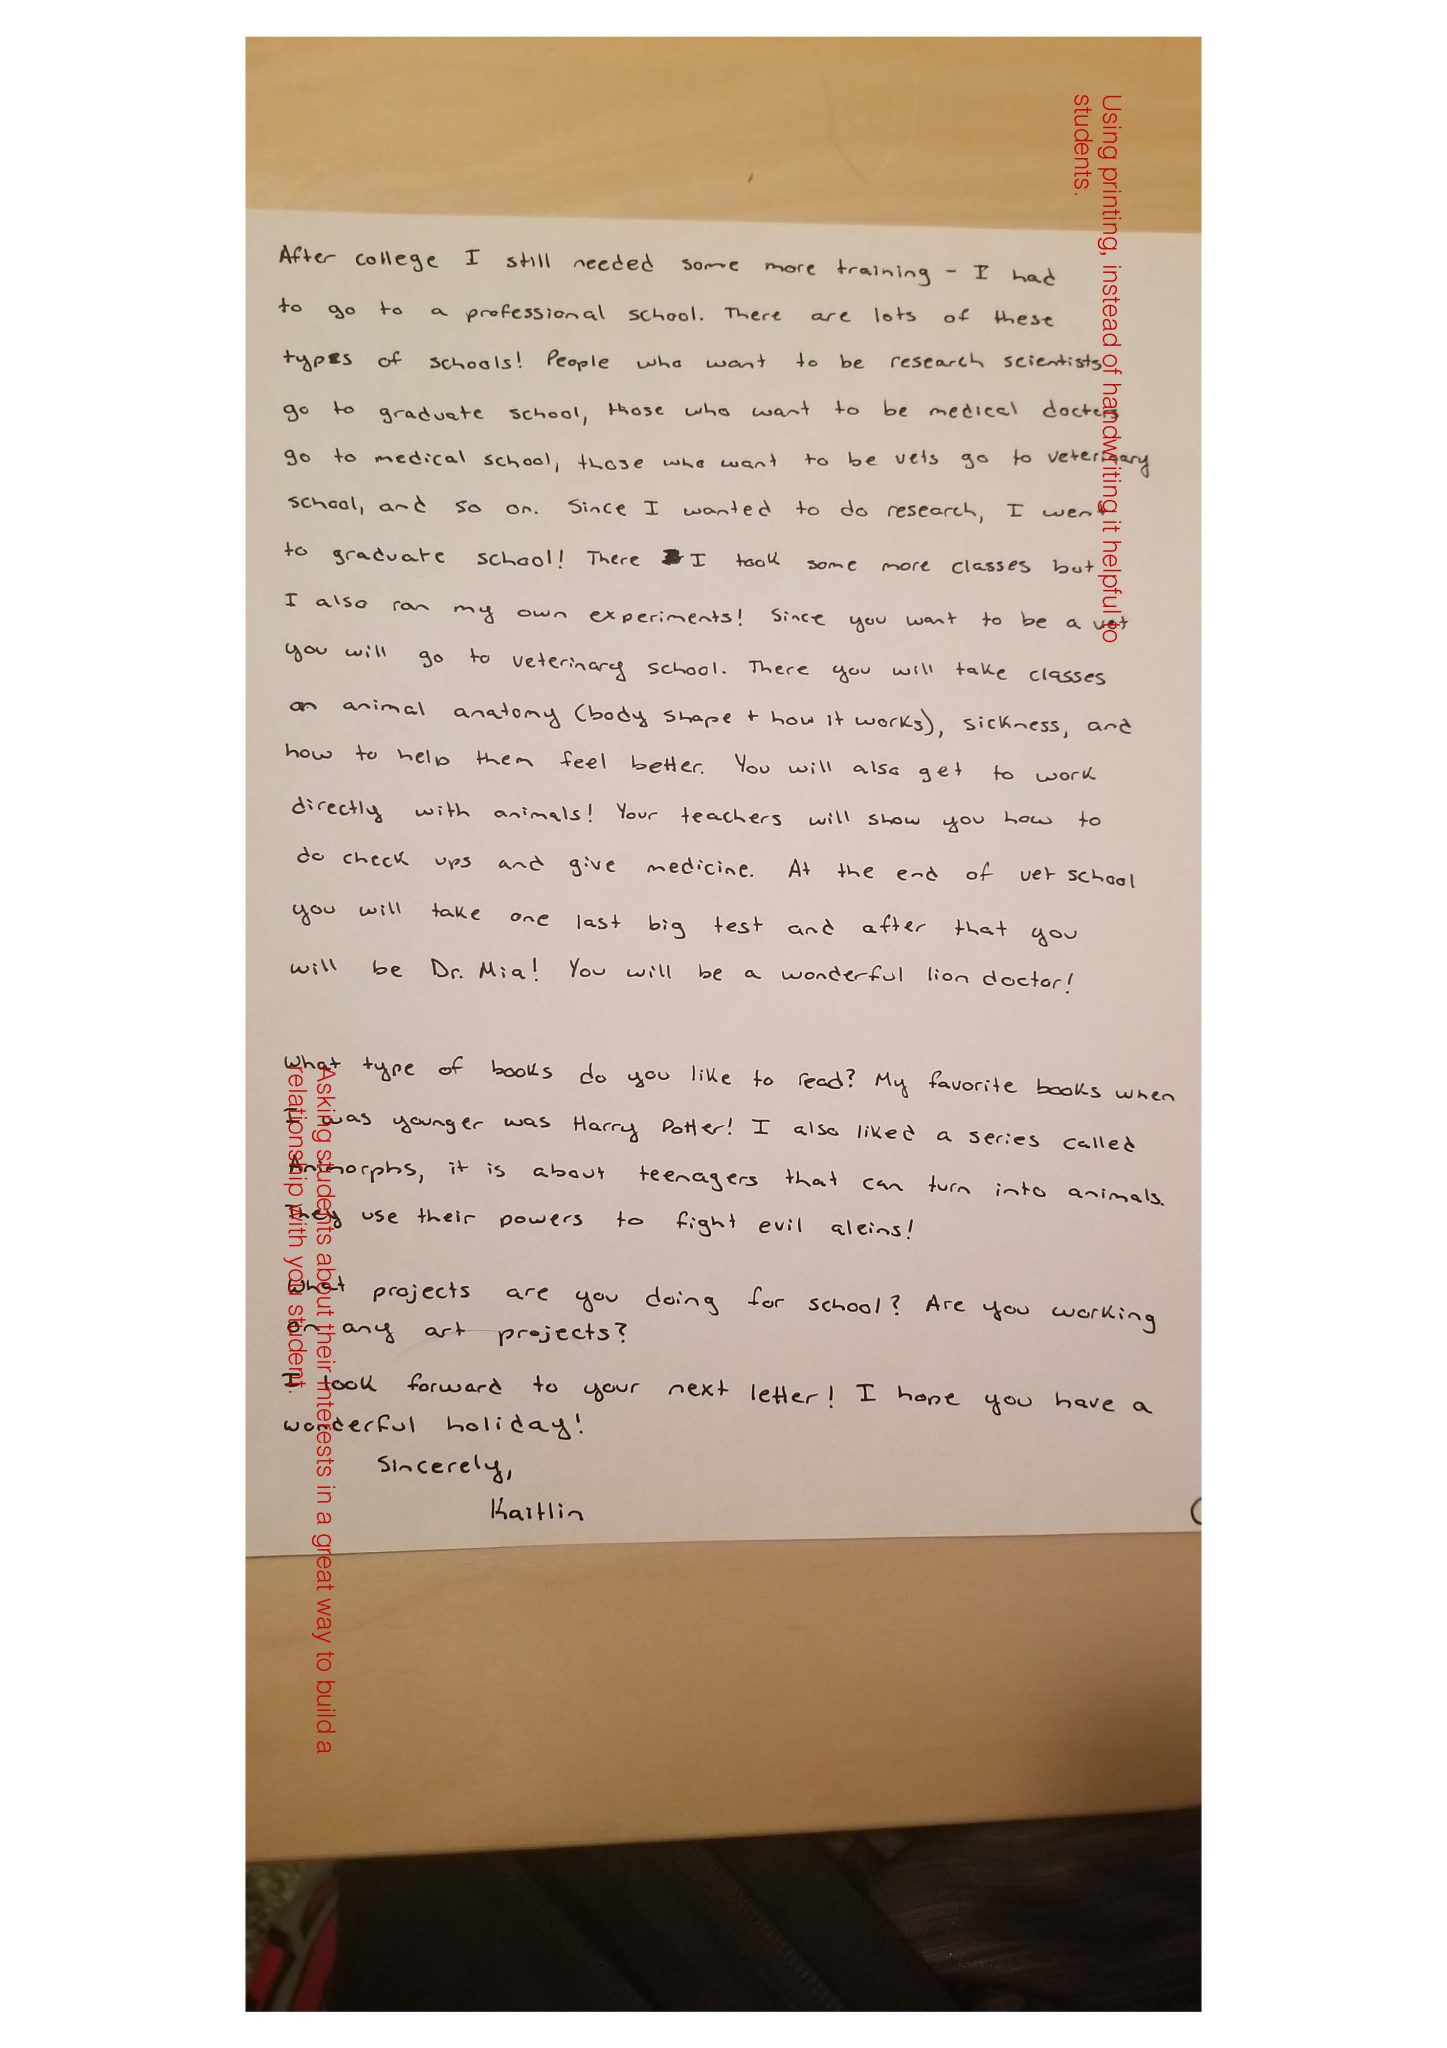 After college I still needed some more training - I had
to go to a professional school. There are lots of these
types of schools! People who want to be research scientists
go to graduate school, those who want to be medical doctors
go to medical school, those who want to be vets go to veterinary
school, and so on. Since I wanted to do research, I went
to graduate school! There I took some more classes but
I also ran my own experiments! Since you want to be a vet
you will go to veterinary school. There you will take classes
on animal anatomy (body shape + how it works), sickness, and
how to help them feel better. You will also get to work
directly with animals! Your teachers will show you how to
do check ups and give medicine. At the end of vet school
you will take one last big test and after that you
will be Dr. Mia! You will be a wonderful lion doctor!
What type of books do you like to read? My favorite books when
I was younger was Harry Potter! I also liked a series called
Animorphs, it is about teenagers that can turn into animals.
They use their powers to fight evil aleins!
What projects are you doing for school? Are you working
on any art projects?
I look forward to your next letter! I hope you have a
wonderful holiday!
Sincerely,
Kaitlin
Using printing, instead of handwriting it helpful to
students.
Asking students about their interests in a great way to build a
relationship with you student.